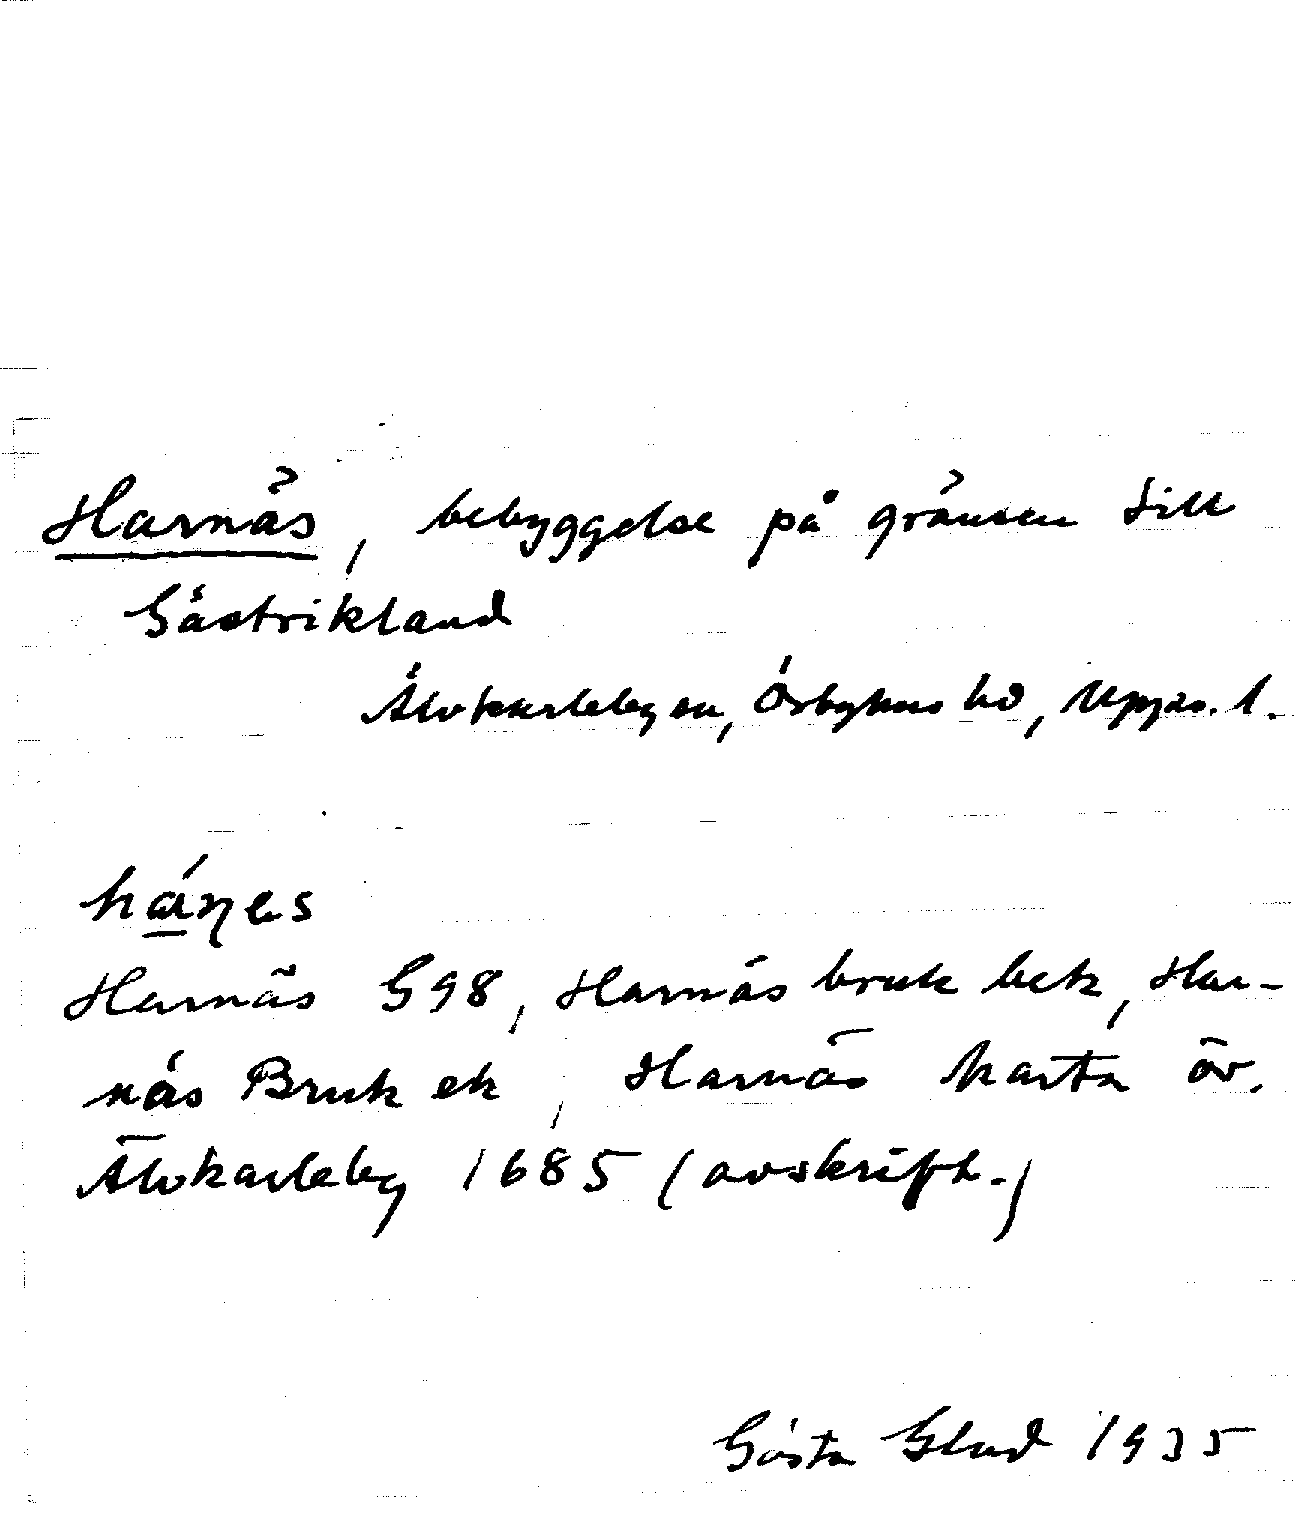 Harnäs, bebyggelse på gränsen till
Gästrikland
Älvkarleby sn, Örbyhus hd, Uppsa. l.
há̱ṇes
Harnäs G98, Harnäs bruk bek, Har-
näs Bruk ek, Harnäs karta öv.
Älvkarleby 1685 (avskrift.)
Gösta Glad 1935